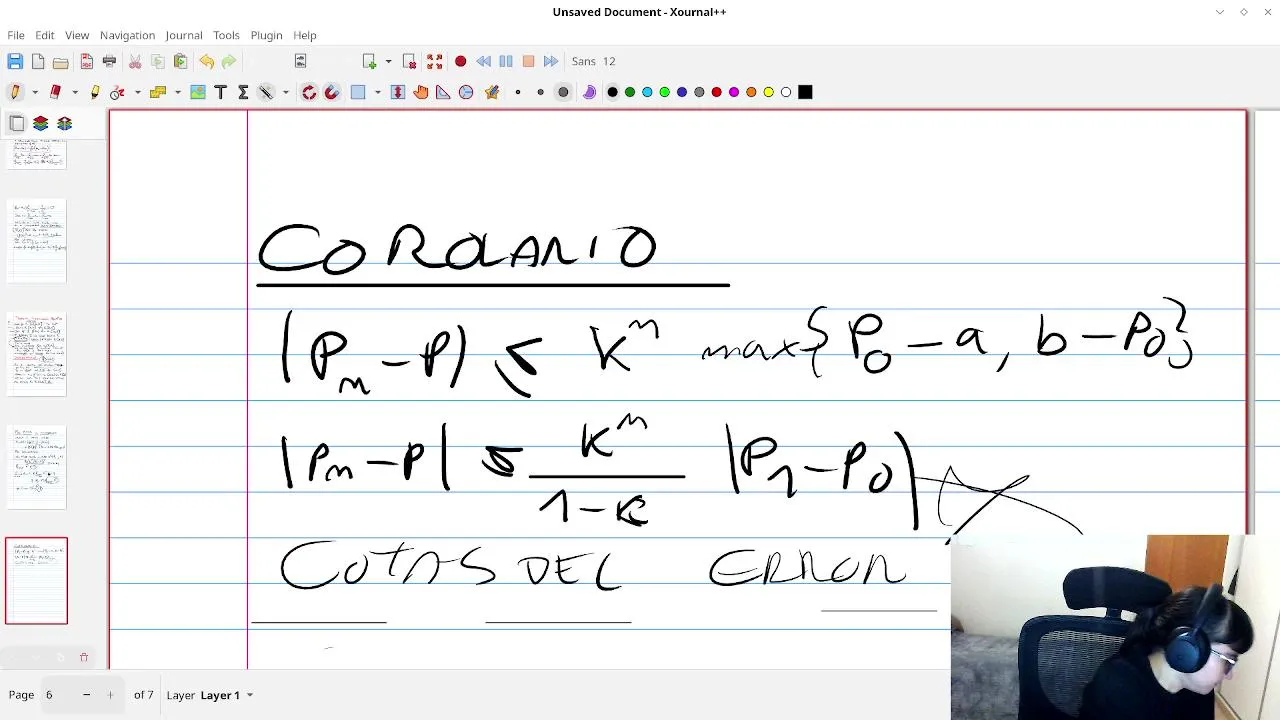 Unsaved Document - Xournal++
File Edit View Navigation Journal Tools Plugin Help
Sans 12
COROLARIO
|Pn - P| ≤ K^n max{P0 - a, b - P0}
|Pn - P| ≤ K^n / 1 - K |P1 - P0|
COTAS DEL ERROR
Page 6 of 7 Layer Layer 1